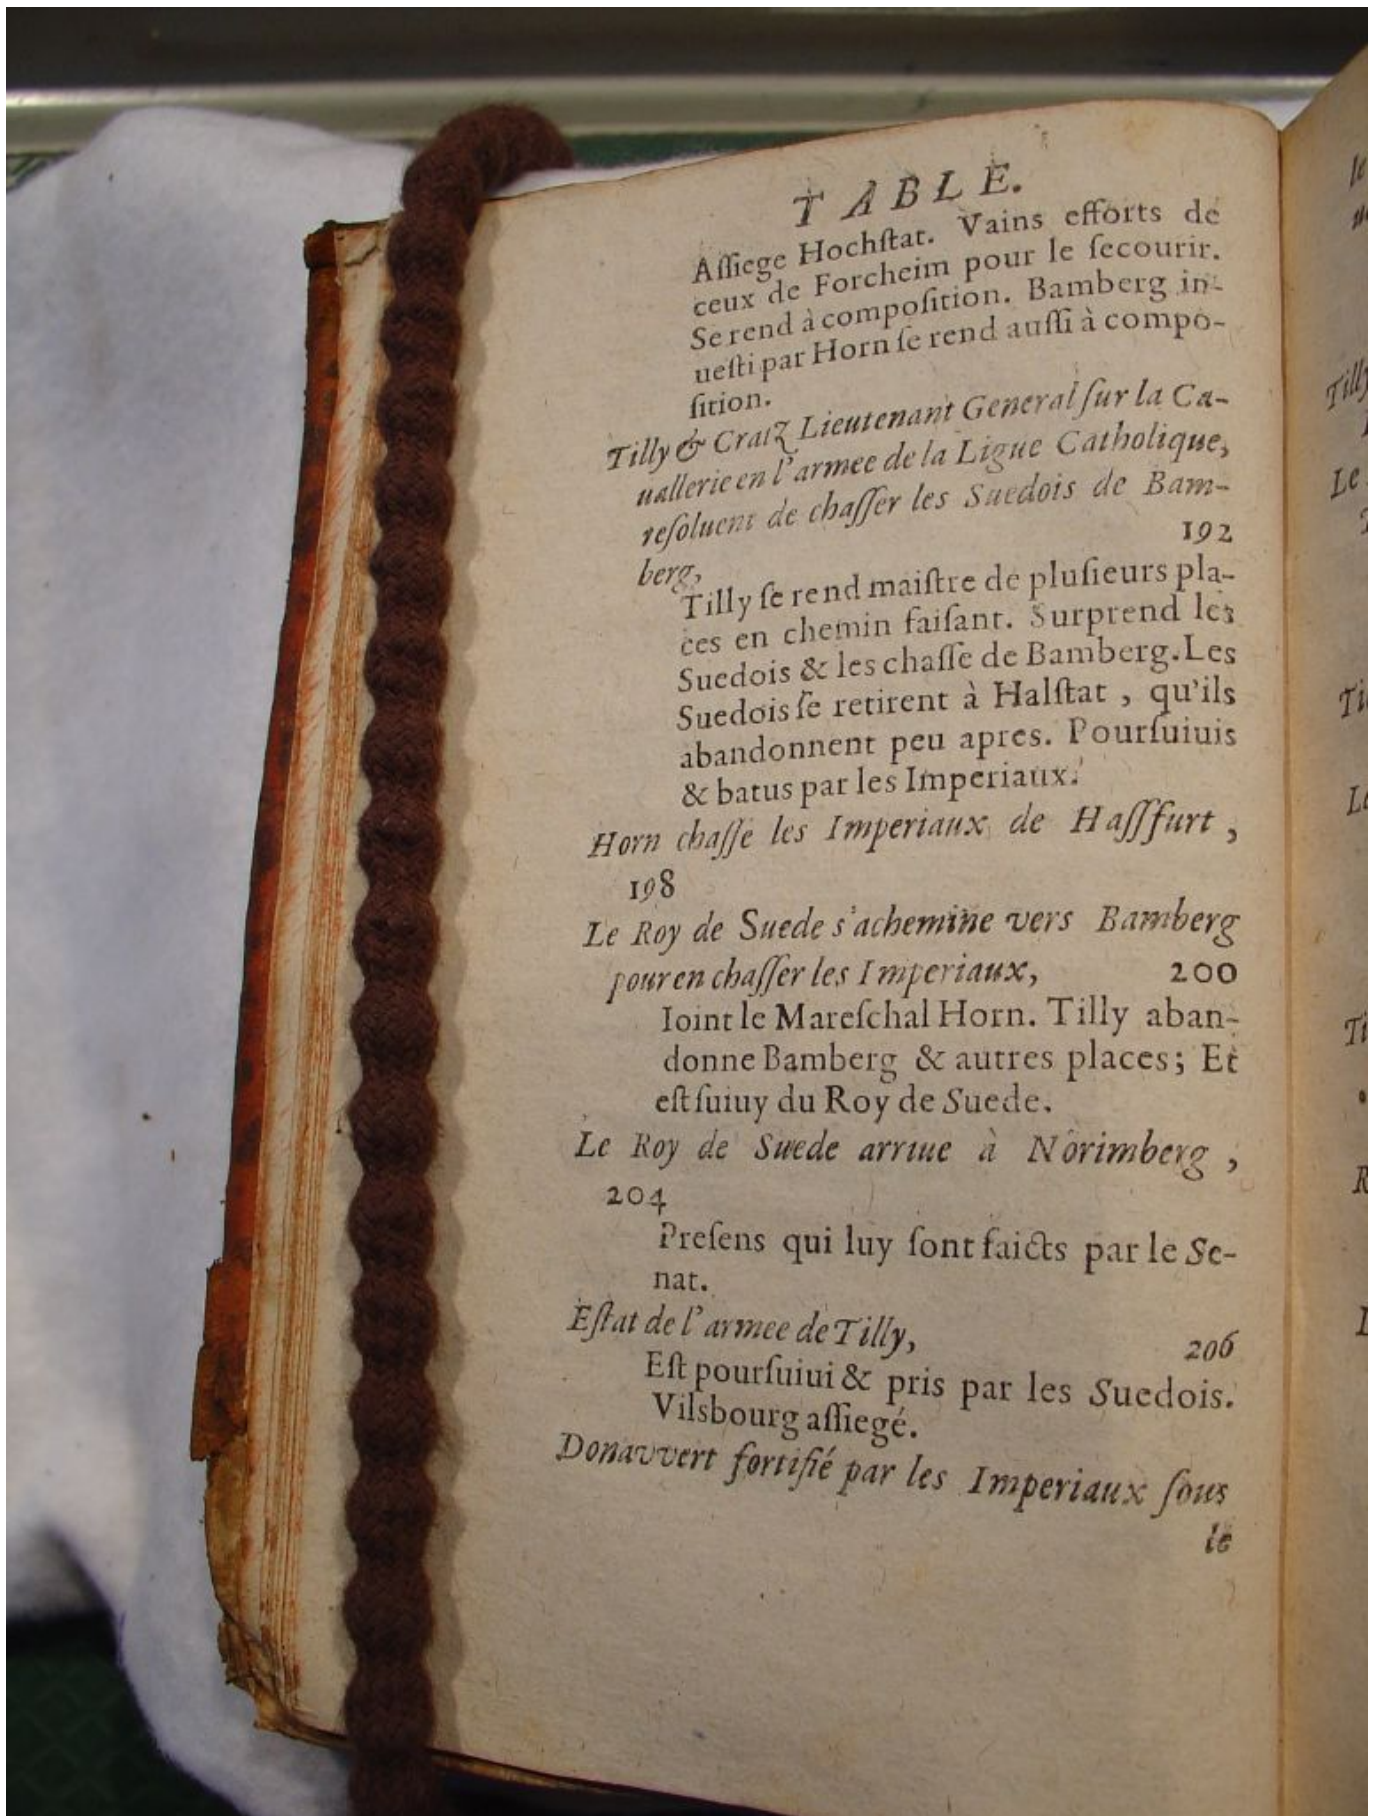 TABLE.
Aſſiege Hochſtat. Vains efforts de
ceux de Forcheim pour le ſecourir.
Se rend à compoſition. Bamberg in-
ueſti par Horn ſe rend auſſi à compo-
ſition.
Tilly & Cratz Lieutenant General ſur la Ca-
uallerie en l'armee de la Ligue Catholique,
reſoluent de chaſſer les Suedois de Bam-
berg, 192
Tilly ſe rend maiſtre de pluſieurs pla-
ces en chemin faiſant. Surprend les
Suedois & les chaſſe de Bamberg. Les
Suedois ſe retirent à Halſtat , qu'ils
abandonnent peu apres. Pourſuiuis
& batus par les Imperiaux.
Horn chaſſe les Imperiaux de Haſſfurt ,
198
Le Roy de Suede s'achemine vers Bamberg
pour en chaſſer les Imperiaux, 200
Ioint le Mareſchal Horn. Tilly aban-
donne Bamberg & autres places; Et
eſt ſuiuy du Roy de Suede.
Le Roy de Suede arriue à Norimberg ,
204
Preſens qui luy ſont faicts par le Se-
nat.
Eſtat de l'armee de Tilly, 206
Eſt pourſuiui & pris par les Suedois.
Vilsbourg aſſiegé.
Donavvert fortifié par les Imperiaux ſous
le
Tilly
Le